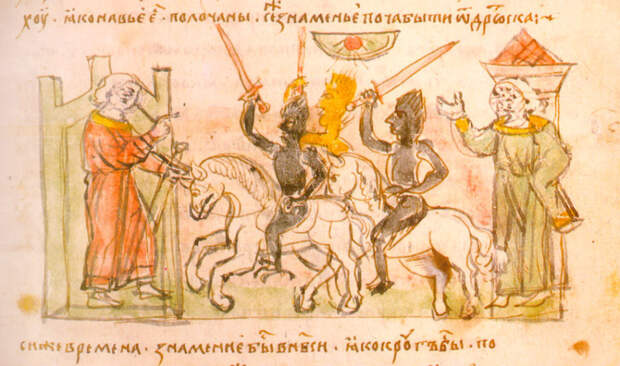 хоу · ꙗко навье е҃ · полочаны · се ж знаменье поча быти ѿ
си же времена · знамение бы в нб҃си · ꙗко кроугъ бы · по